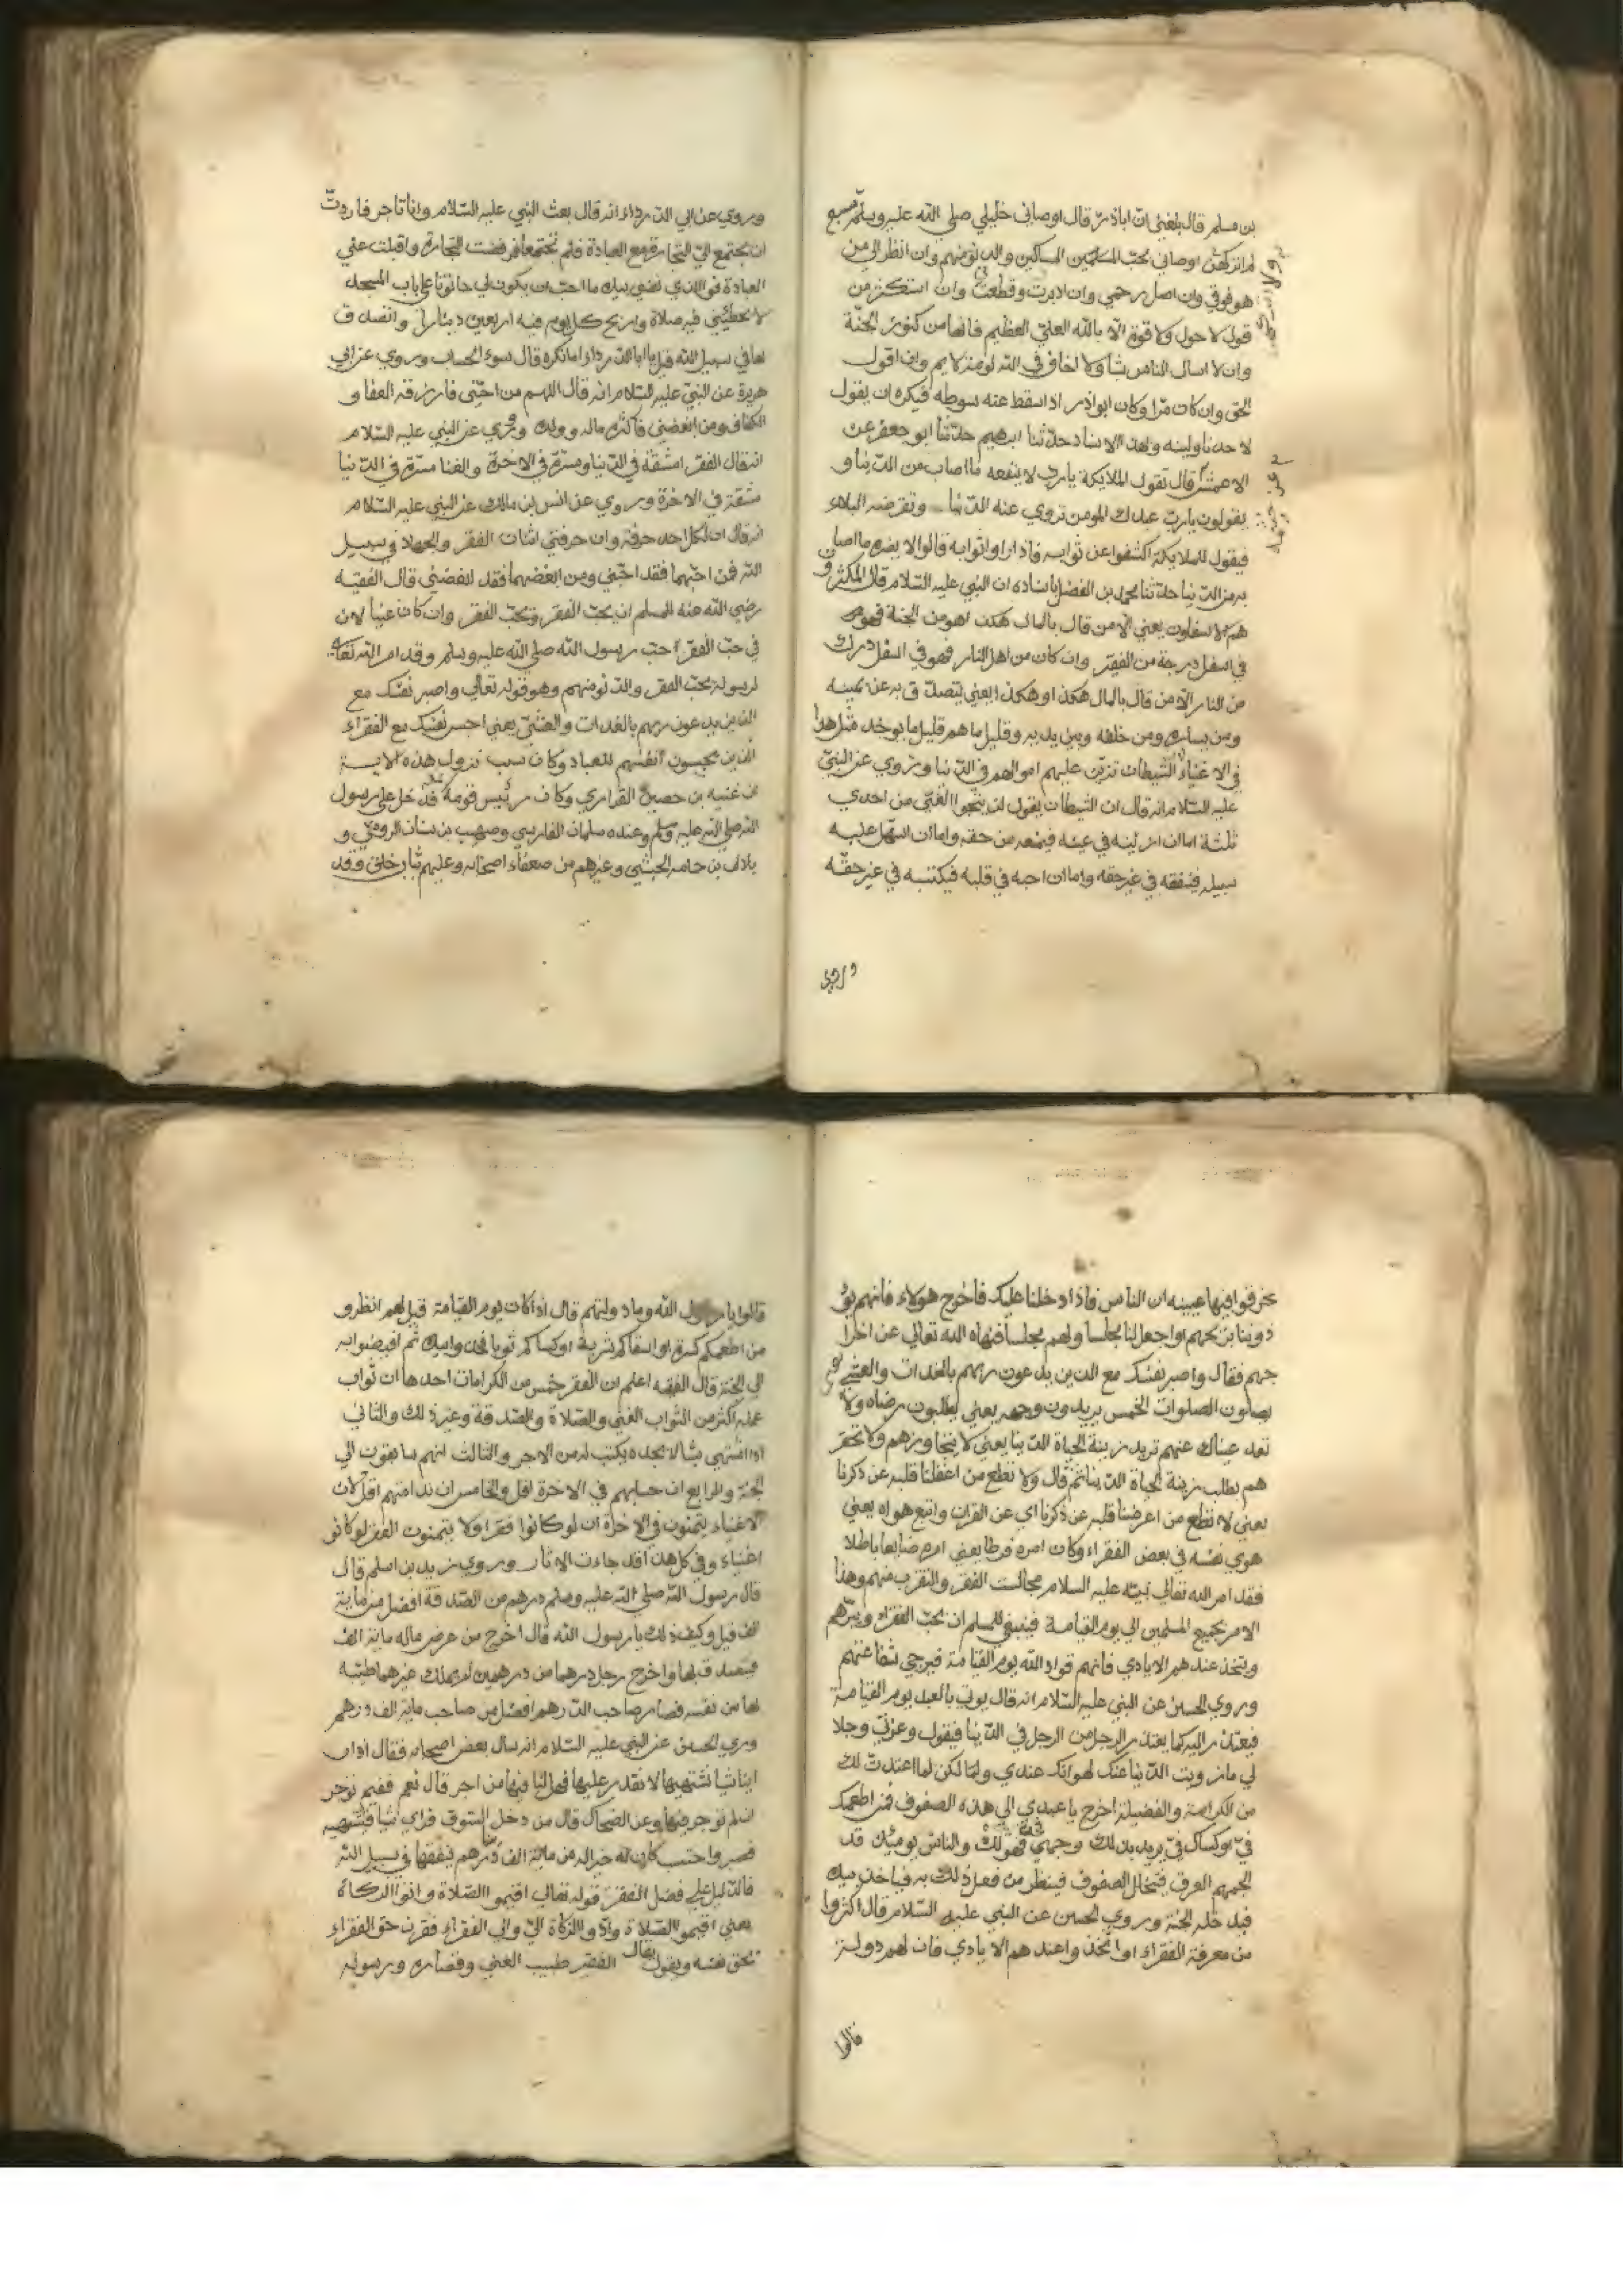 بن مسلم قال بلغني ان اباذر قال اوصاني خليلي صلى الله عليه وسلم بسبع
لم اتركهن اوصاني بحب المساكين والدنو منهم وان انظر الى من
هو فوقي وان اصل رحمي وان ادبرت وقطعت وان استكثر من
قول لا حول ولا قوة الا بالله العلي العظيم فانها من كنوز الجنة
وان لا اسال الناس شيا ولا اخاف في الله لومة لايم وان اقول
الحق وان كان مرا وكان ابو اذر اذا سقط عنه سوطه فيكره ان يقول
لاحد ناولينه وبهذا الاسناد حدثنا ابرهيم حدثنا ابو جعفر عن
الاعمش قال تقول الملايكة يارب لا ينفعه ما اصاب من الدنيا و
يقولون يارب عبدك المومن تزوي عنه الدنيا وتعرضه البلاء
فيقول للملايكة اكشفوا عن ثوابه فاذا راوا ثوابه قالوا لا يضره ما اصا
به من الدنيا حدثنا محمد بن الفضل باسناده ان النبي عليه السلام قال المكثرون
هم الاسفلون يعني الا من قال بالمال هكذا هو من الجنة فهو
في اسفل درجة من الفقير وان كان من اهل النار فهو في اسفل درك
من النار الا من قال بالمال هكذا وهكذا يعني يتصدق به عن يمينه
ومن يساره ومن خلفه وبين يديه وقليل ما هم قليل ما يوجد مثل هذا
في الاغنياء الشيطان تزين عليهم اموالهم في الدنيا وروي عن النبي
عليه السلام انه قال ان الشيطان يقول لن ينجوا الغني من احدي
ثلثة اما ان ازينه في عينه فيمنعه من حقه واما ان اسهل عليه
سبيله فينفقه في غير حقه واما ان احبه في قلبه فيكتسبه في غير حقه
وروي
وروي عن ابي الدرداء انه قال بعث النبي عليه السلام وانا تاجر فاردت
ان يجتمع الي التجارة مع العبادة فلم تجتمعا فرفضت التجارة واقبلت عني
العبادة فوالذي نفسي بيده ما احب ان يكون لي حانوتا على باب المسجد
لا تخطئني فيه صلاة واربح كل يوم فيه اربعين دينارا واتصدق
بها في سبيل الله قيل يا ابا الدرداء ما تكره قال سوء الحساب وروي عن ابي
هريرة عن النبي عليه السلام انه قال اللهم من احبني فارزقه العفا و
الكفاف ومن ابغضني فاكثر ماله وولده وروي عن النبي عليه السلام
انه قال الفقر مشقة في الدنيا ومسرة في الاخرة والغنا مسرة في الدنيا
مشقة في الاخرة وروي عن انس بن مالك عن النبي عليه السلام
انه قال ان لكل احد حرفة وان حرفتي اثنان الفقر والجهاد في سبيل
الله فمن احبهما فقد احبني ومن ابغضهما فقد ابغضني قال الفقيه
رضي الله عنه المسلم ان يحب الفقر ويحب الفقر وان كان غنيا لان
في حب الفقراء حب رسول الله صلى الله عليه وسلم وقد امر الله تعالى
لرسوله بحب الفقر والدنو منهم وهو قوله تعالى واصبر نفسك مع
الذين يدعون ربهم بالغدات والعشي يعني احبس نفسك مع الفقراء
الذين يحبسون انفسهم للعباد وكان سبب نزول هذه الاية
ان عنيه بن حصين الفزاري وكان رئيس قومه قد دخل على رسول
الله صلى الله عليه وسلم وعنده سلمان الفارسي وصهيب بن سنان الرومي و
بلال بن حامه الحبشي وغيرهم من ضعفاء اصحابه وعليهم ثياب خلق وقد
عرقوا فيها عيينه ان الناس فاذا دخلنا عليك فاخرج هولاء فانهم يؤ
ذوننا بريحهم او اجعل لنا مجلسا ولهم مجلسا فنهاه الله تعالى عن اخرا
جهم فقال واصبر نفسك مع الذين يدعون ربهم بالغدات والعشي
يصلون الصلوات الخمس يريدون وجهه يعني يطلبون رضاه ولا
تعد عيناك عنهم تريد زينة الحياة الدنيا يعني لا يتجاوزهم ولا تحقر
هم بطلب زينة الحياة الدنيا ثم قال ولا تطع من اغفلنا قلبه عن ذكرنا
يعني لا تطع من اعرضنا قلبه عن ذكرنا اي عن القران واتبع هواه يعني
هوي نفسه في بعض الفقراء وكان امره فرطا يعني امره ضايعا باطلا
فقد امر الله تعالى نبيه عليه السلام مجالست الفقر والتقرب منهم وهذا
الامر بجميع المسلمين الى يوم القيامة فينبغي للمسلم ان يحب الفقراء ويبرهم
ويتخذ عندهم الايادي فانهم قواد الله يوم القيامة فيرجي شفاعتهم
وروي الحسن عن النبي عليه السلام انه قال يوتى بالعبد يوم القيامة
فيعتذر اليه كما يعتذر الرجل من الرجل في الدنيا فيقول وعزتي وجلا
لي ما زويت الدنيا عنك لهوانك عندي ولكن لما اعتدت لك
من الكرامة والفضيلة اخرج يا عبدي الى هذه الصفوف فمن اطعمك
في او كساك في يريد بذلك وجهي فهو لك والناس يوميذ قد
الجمهم العرق فيتخلل الصفوف فينظر من فعل ذلك به فياخذ بيده
فيدخله الجنة وروي الحسن عن النبي عليه السلام قال اكثروا
من معرفة الفقراء او اتخذوا عندهم الايادي فان لهم دولة
قالوا
قالوا يا رسول الله وما دولتهم قال اذا كان يوم القيامة قيل لهم انظرو
من اطعمكم كسرة او اسقاكم شربة او كساكم ثوبا فخذوا بيده ثم افيضوا به
الى الجنة قال الفقيه اعلم ان الفقر خمس من الكرامات احدها ان ثواب
عمله اكثر من الثواب الغني والصلاة والصدقة وغير ذلك والثاني
اذا اشتهي شيا لا يجده يكتب له من الاجر والثالث انهم سابقون الى
الجنة والرابع ان حسابهم في الاخرة اقل والخامس ان ندامتهم اقل لان
الاغنياء يتمنون في الاخرة ان لو كانوا فقراء ولا يتمنون الفقر لو كانو
اغنياء وفي كل هذا قد جاءت الاثار وروي زيد بن اسلم قال
قال رسول الله صلى الله عليه وسلم درهم من الصدقة افضل من ماية
الف قيل وكيف ذلك يا رسول الله قال اخرج من عرض ماله ماية الف
فيتصدق بها واخرج رجل درهما من درهمين لا يملك غيرهما طيبه
بها من نفسه فصار صاحب الدرهم افضل من صاحب ماية الف درهم
وري الحسن عن النبي عليه السلام انه سال بعض اصحابه فقال اذا ر
اينا شيا نشتهيها لا نقدر عليها فهل لنا فيها من اجر قال نعم ففيم نوجر
ان لم توجر فيها وعن الضحاك قال من دخل السوق فراي شيا فيشتهيه
فصبر واحتسب كان له خيرا له من ماية الف درهم ينفقها في سبيل الله
فالدليل على فضل الفقر قوله تعالى اقيموا الصلاة واتوا الزكاة
يعني اقيموا الصلاة وادو الزكاة الي والى الفقراء فقرن حق الفقراء
بحق نفسه ويقول يقال الفقير طبيب الغني وقصاره ورسوله